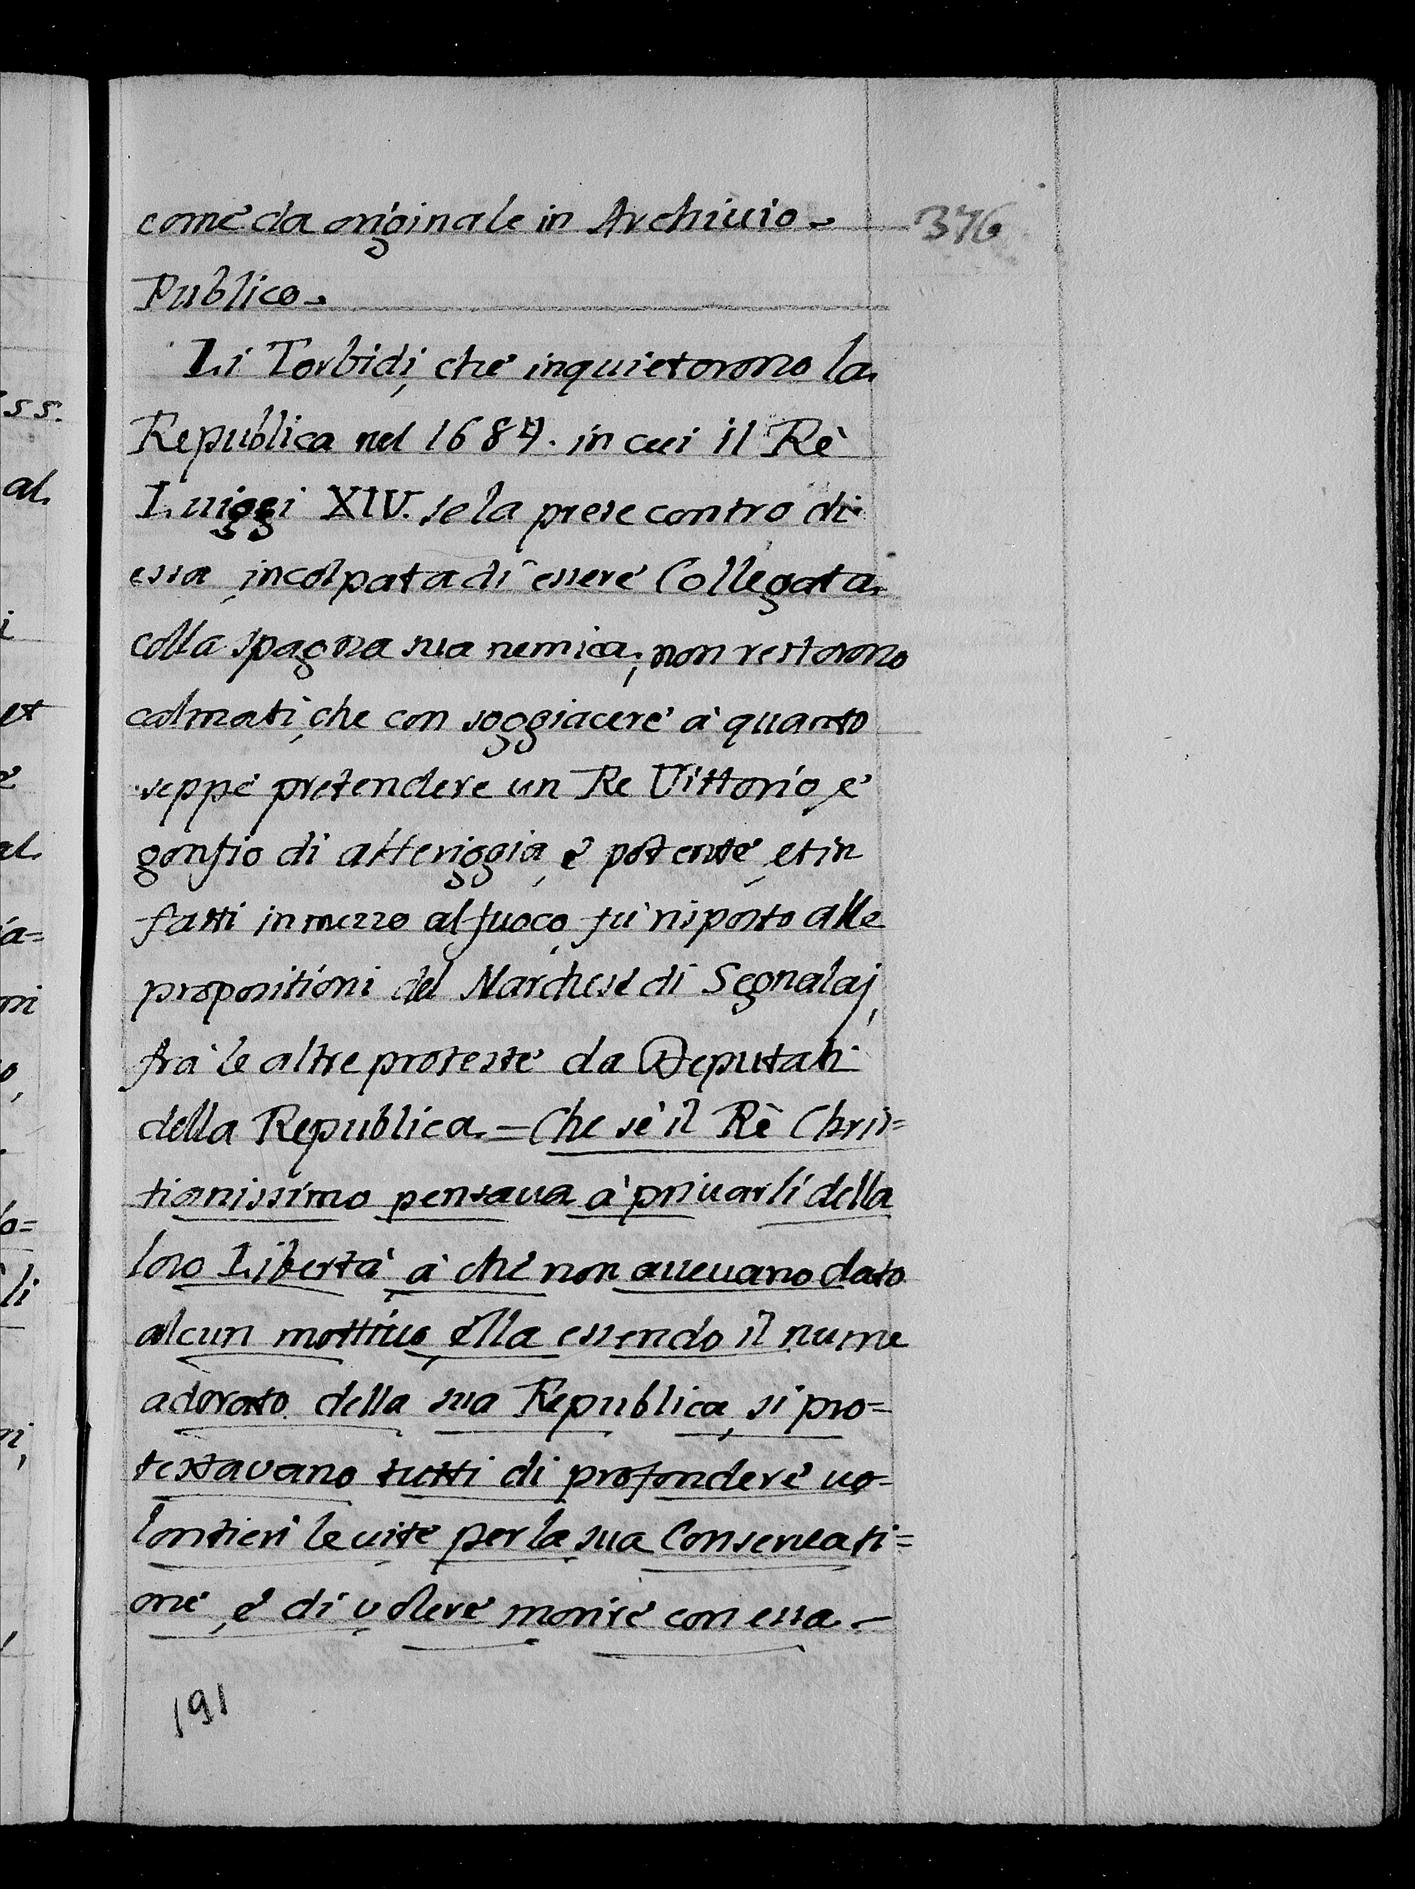 come da originale in Archiuio 376
Publico
Li Torbidi, che inquietorono la
Republica nel 1684. in cui il Rè
Luiggi XIV. se la prese contro di
essa, incolpata di essere Collegata
colla spagna sua nemica, non restorono
calmati, che con soggiacere à quanto
seppe pretendere un Re Vittorio, e
gonfio di alteriggia, e potente, et in
fatti in mezzo al fuoco, fù risposto alle
propositioni del Marchese di Segnalaj,
frà le altre proteste da Deputati
della Republica = Che sè il Rè Chris=
tianissimo pensaua à priuarli della
loro Libertà à che non aueuano dato
alcun mottiuo, ella essendo il nume
adorato della sua Republica, si pro=
testavano tutti di profondere uo-
lontieri le uite per la sua Conseruati=
one, e di volere morire con essa. -
191
ss.
al
i
et
e
al
ia=
ni
o,
lo=
li
ni,